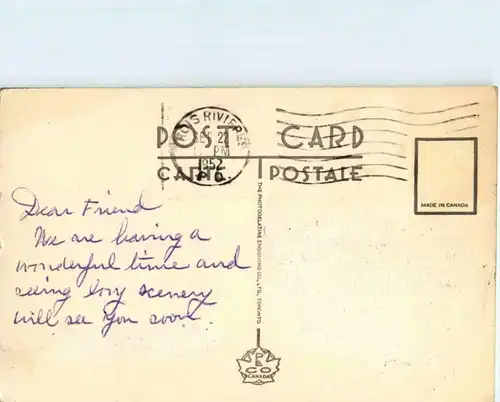 POST CARD
CARTE POSTALE
1952
P.Q.
MADE IN CANADA
Dear Friend
We are having a
wonderful time and
seeing lovy scenery
will see you soon.
THE PHOTOGELATINE ENGRAVING CO., LTD., TORONTO.
PECO
CANADA